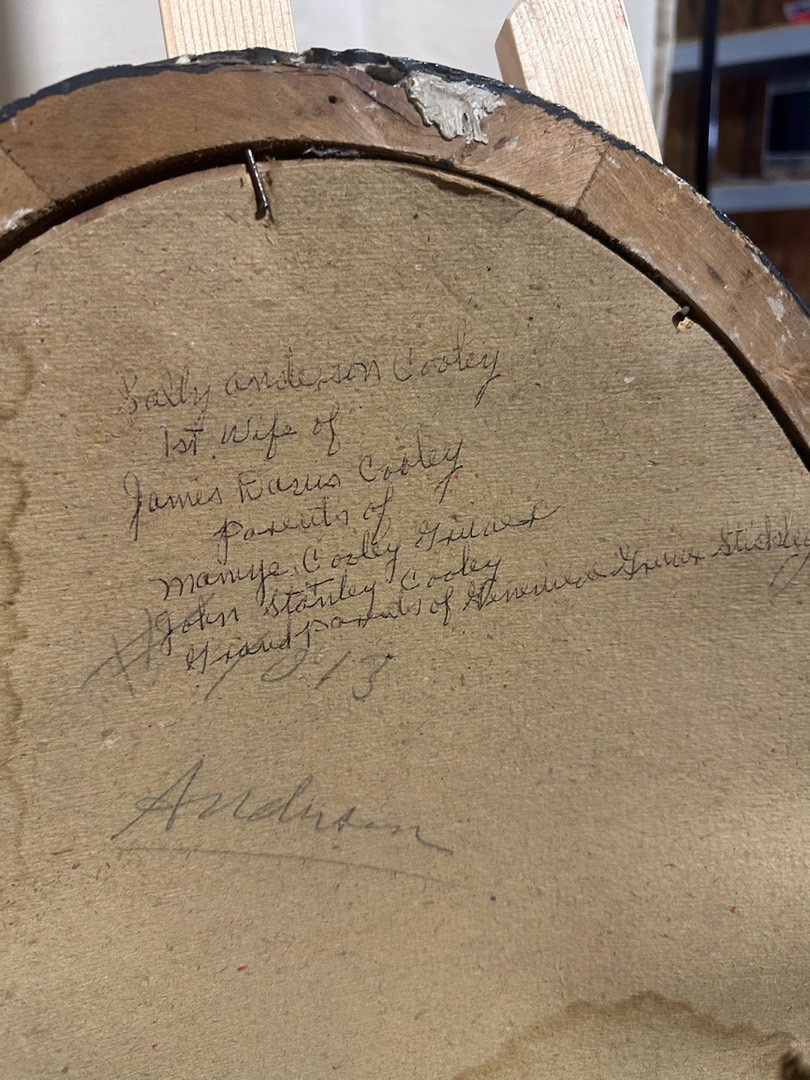 Sally Anderson Cooley
1st Wife of
James Darus Cooley
parents of
Mamye Cooley Griner
John Stanley Cooley
Grandparents of Genevieve Griner Stickley
# 1013
Anderson